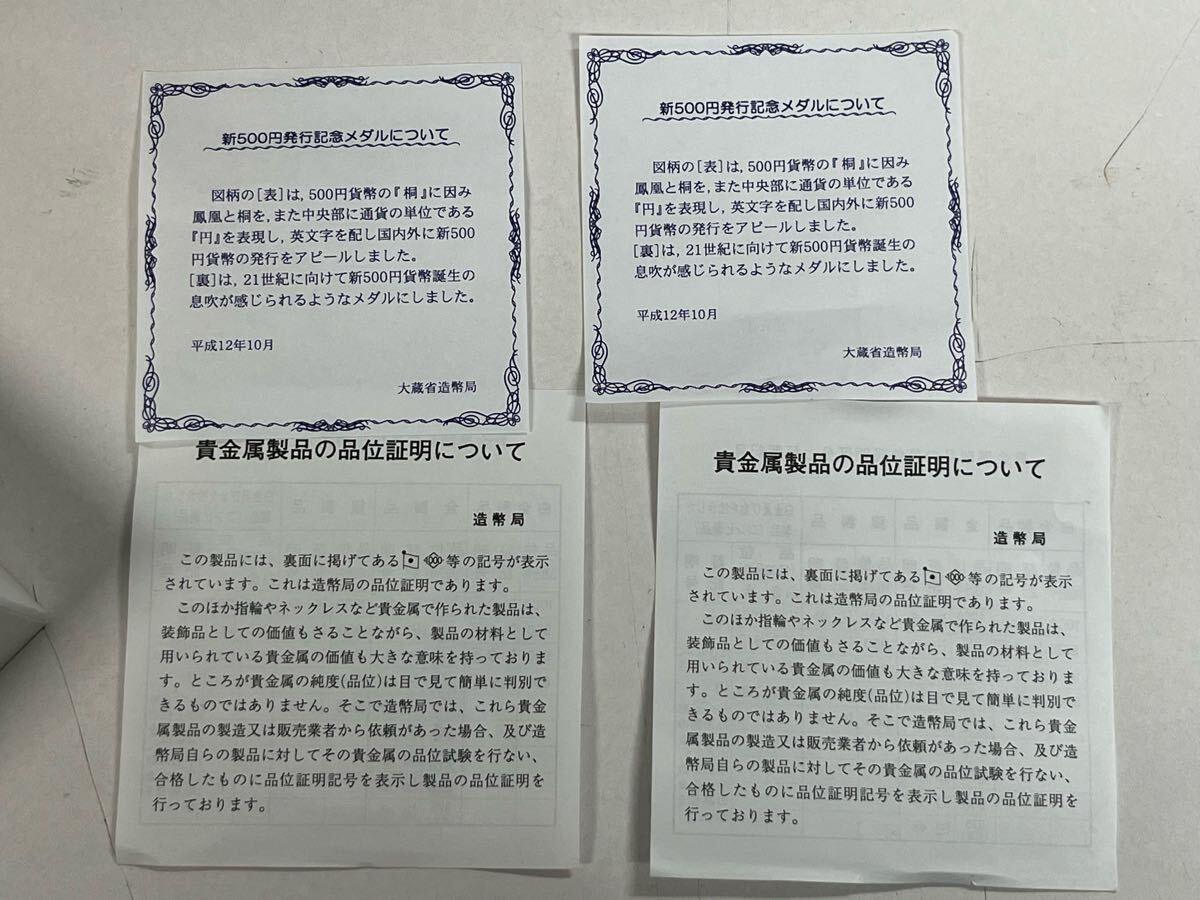 新500円発行記念メダルについて
図柄の[表]は,500円貨幣の『桐』に因み
鳳凰と桐を,また中央部に通貨の単位である
『円』を表現し,英文字を配し国内外に新500
円貨幣の発行をアピールしました。
[裏]は,21世紀に向けて新500円貨幣誕生の
息吹が感じられるようなメダルにしました。
平成12年10月
大蔵省造幣局
新500円発行記念メダルについて
図柄の[表]は,500円貨幣の『桐』に因み
鳳凰と桐を,また中央部に通貨の単位である
『円』を表現し,英文字を配し国内外に新500
円貨幣の発行をアピールしました。
[裏]は,21世紀に向けて新500円貨幣誕生の
息吹が感じられるようなメダルにしました。
平成12年10月
大蔵省造幣局
貴金属製品の品位証明について
造幣局
この製品には、裏面に掲げてある 1000 等の記号が表示
されています。これは造幣局の品位証明であります。
このほか指輪やネックレスなど貴金属で作られた製品は、
装飾品としての価値もさることながら、製品の材料として
用いられている貴金属の価値も大きな意味を持っておりま
す。ところが貴金属の純度(品位)は目で見て簡単に判別で
きるものではありません。そこで造幣局では、これら貴金
属製品の製造又は販売業者から依頼があった場合、及び造
幣局自らの製品に対してその貴金属の品位試験を行ない、
合格したものに品位証明記号を表示し製品の品位証明を
行っております。
貴金属製品の品位証明について
造幣局
この製品には、裏面に掲げてある 1000 等の記号が表示
されています。これは造幣局の品位証明であります。
このほか指輪やネックレスなど貴金属で作られた製品は、
装飾品としての価値もさることながら、製品の材料として
用いられている貴金属の価値も大きな意味を持っておりま
す。ところが貴金属の純度(品位)は目で見て簡単に判別で
きるものではありません。そこで造幣局では、これら貴金
属製品の製造又は販売業者から依頼があった場合、及び造
幣局自らの製品に対してその貴金属の品位試験を行ない、
合格したものに品位証明記号を表示し製品の品位証明を
行っております。